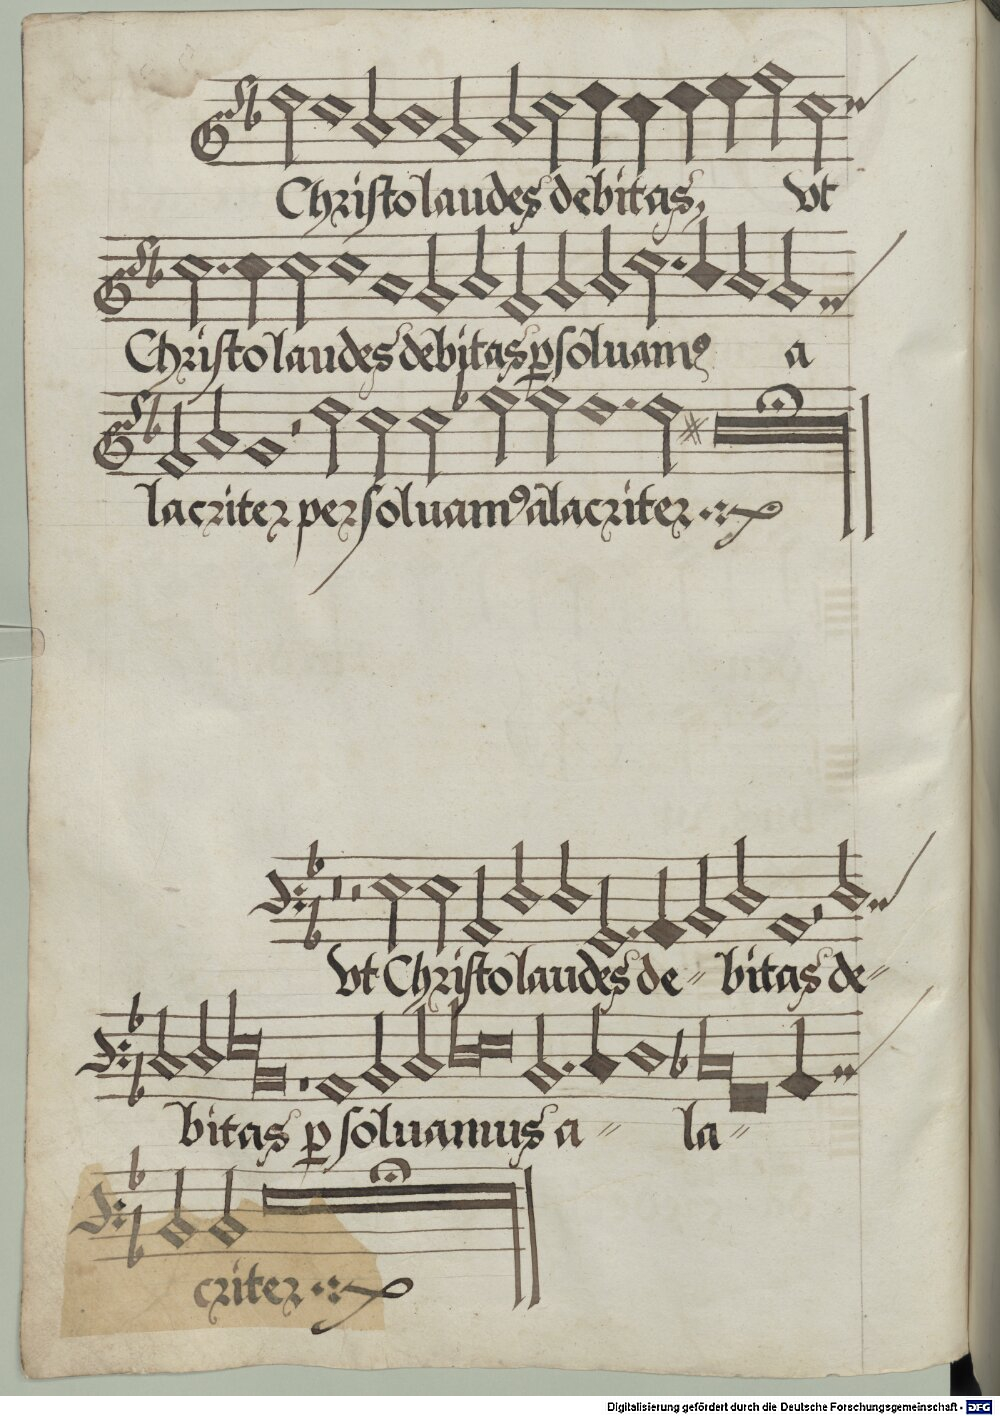 Christo laudes debitas, vt
Christo laudes debitas ꝑsoluamꝰ a
lacriter persoluamꝰ alacriter
vt Christo laudes de= bitas de=
bitas ꝑsoluamus a= la=
criter
Digitalisierung gefördert durch die Deutsche Forschungsgemeinschaft - DFG